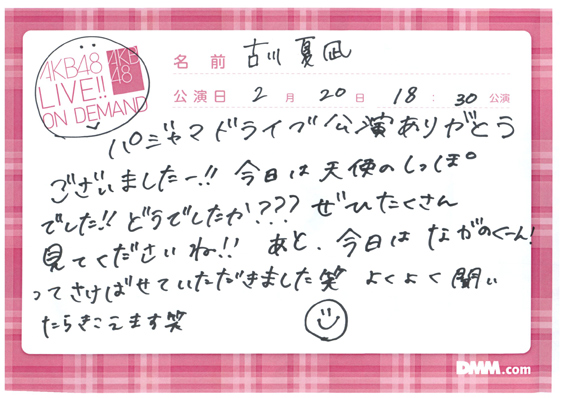 AKB48
LIVE!!
ON DEMAND
AKB
48
名前 古川夏凪
公演日 2月20日 18:30公演
パジャマドライブ公演ありがとう
ございましたー!! 今日は天使のしっぽ
でした!! どうでしたか??? ぜひたくさん
見てくださいね!! あと、今日はながのくーん!
ってさけばせていただきました笑 よくよく聞い
たらきこえます笑
DMM.com